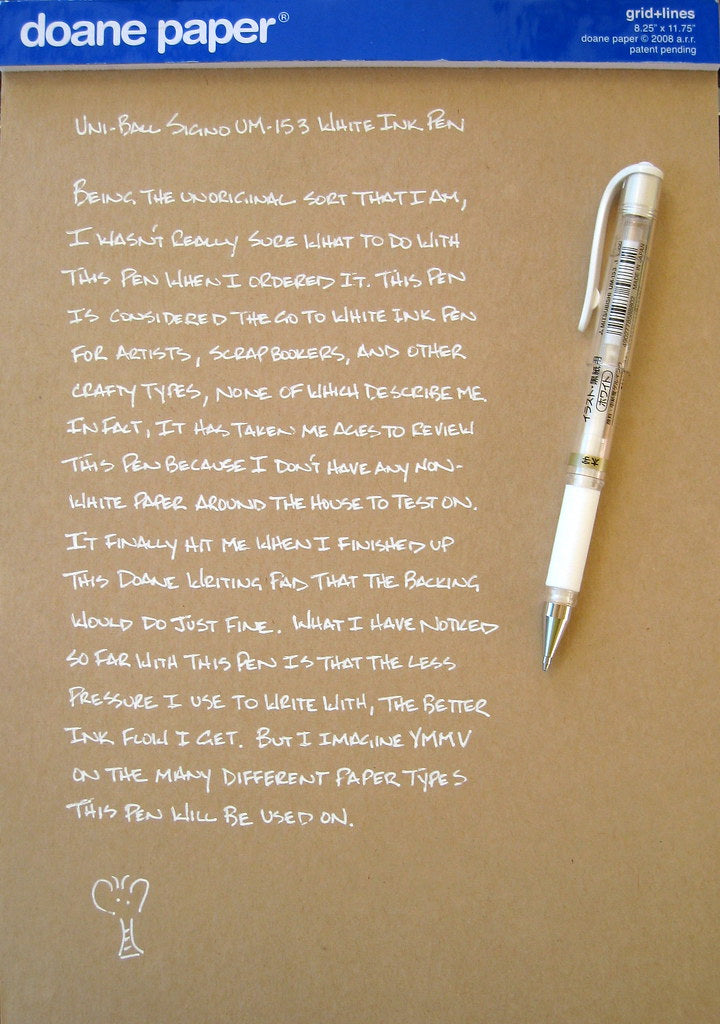 doane paper®
grid+lines
8.25" x 11.75"
doane paper © 2008 a.r.r.
patent pending
UNI-BALL SIGNO UM-153 WHITE INK PEN
BEING THE UNORIGINAL SORT THAT I AM,
I WASN'T REALLY SURE WHAT TO DO WITH
THIS PEN WHEN I ORDERED IT. THIS PEN
IS CONSIDERED THE GO TO WHITE INK PEN
FOR ARTISTS, SCRAPBOOKERS, AND OTHER
CRAFTY TYPES, NONE OF WHICH DESCRIBE ME.
IN FACT, IT HAS TAKEN ME AGES TO REVIEW
THIS PEN BECAUSE I DON'T HAVE ANY NON-
WHITE PAPER AROUND THE HOUSE TO TEST ON.
IT FINALLY HIT ME WHEN I FINISHED UP
THIS DOANE WRITING PAD THAT THE BACKING
WOULD DO JUST FINE. WHAT I HAVE NOTICED
SO FAR WITH THIS PEN IS THAT THE LESS
PRESSURE I USE TO WRITE WITH, THE BETTER
INK FLOW I GET. BUT I IMAGINE YMMV
ON THE MANY DIFFERENT PAPER TYPES
THIS PEN WILL BE USED ON.
MITSUBISHI UM-153
MADE IN JAPAN
イラスト・黒紙用
ホワイト